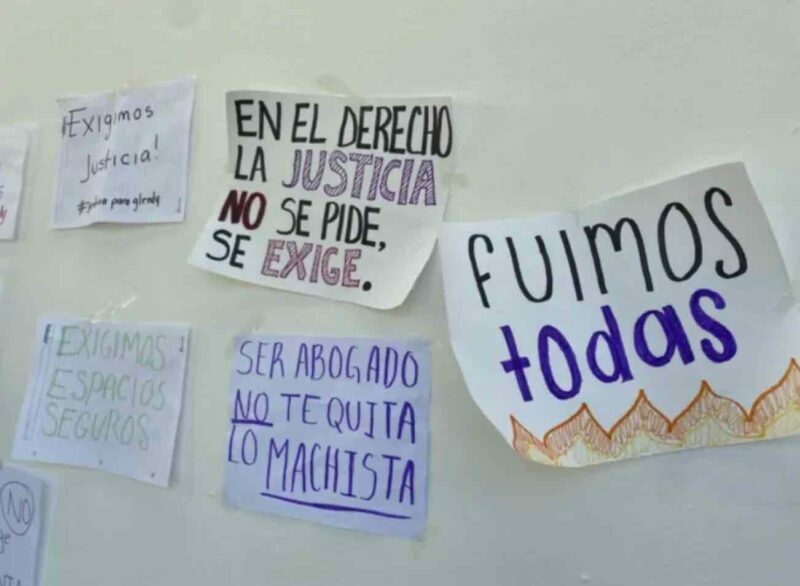 ¡Exigimos
Justicia!
EN EL DERECHO
LA JUSTICIA
NO SE PIDE,
SE EXIGE.
FUIMOS
todas
¡EXIGIMOS
ESPACIOS
SEGUROS
SER ABOGADO
NO TE QUITA
LO MACHISTA
NO